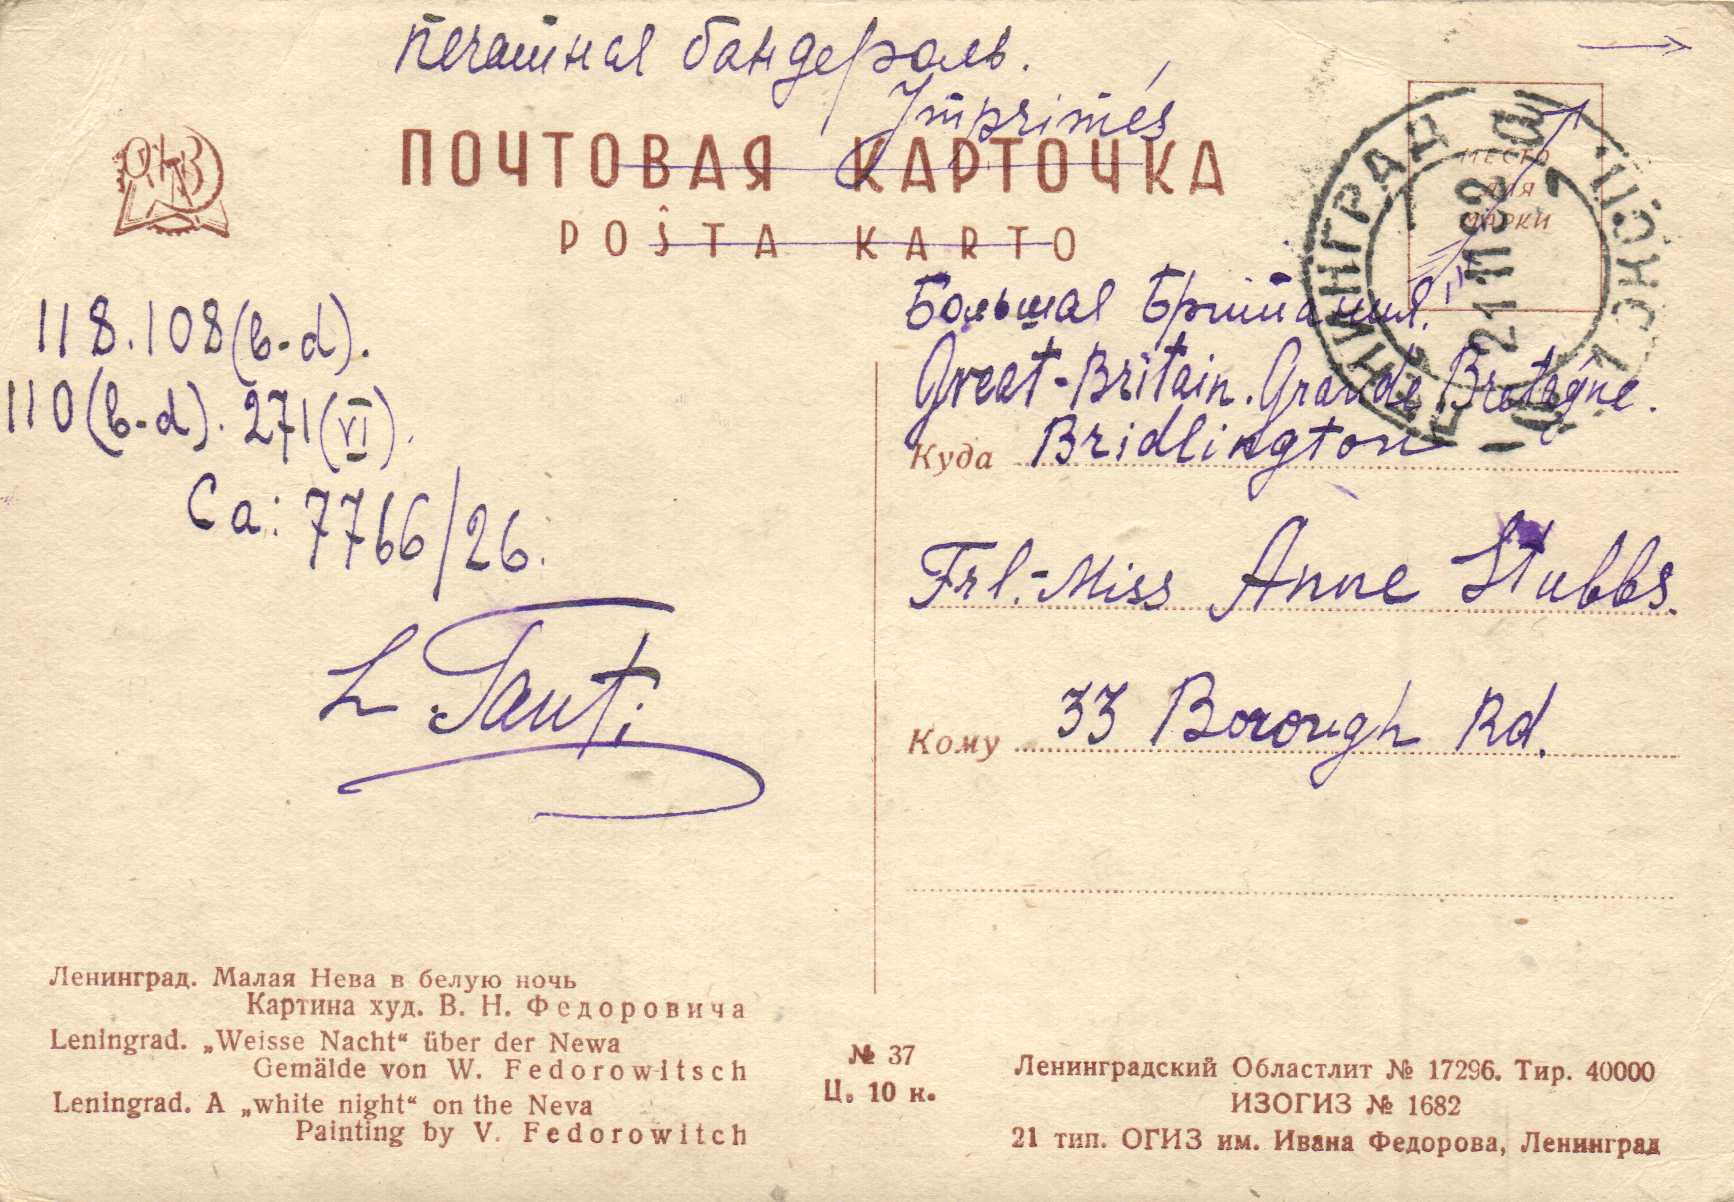 Печатная бандероль.
Imprimés
ПОЧТОВАЯ КАРТОЧКА
POŜTA KARTO
МЕСТО
ДЛЯ
МАРКИ
ЛЕНИНГРАД
21 11 32
118.108(b-d).
110(b-d). 271(VI).
Ca: 7766/26.
Большая Британия.
Great-Britain. Grande Bretagne.
Куда Bridlington
Frl.-Miss Anne Stubbs.
Кому 33 Borough Rd.
Ленинград. Малая Нева в белую ночь
Картина худ. В. Н. Федоровича
Leningrad. „Weisse Nacht“ über der Newa
Gemälde von W. Fedorowitsch
Leningrad. A „white night“ on the Neva
Painting by V. Fedorowitch
№ 37
Ц. 10 к.
Ленинградский Областлит № 17296. Тир. 40000
ИЗОГИЗ № 1682
21 тип. ОГИЗ им. Ивана Федорова, Ленинград